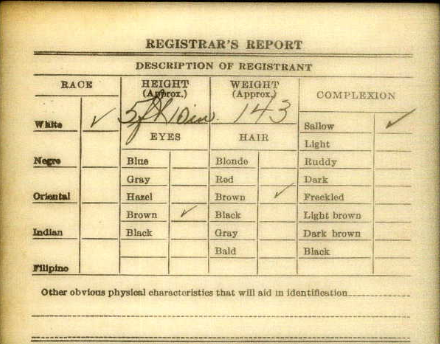 REGISTRAR'S REPORT
DESCRIPTION OF REGISTRANT
RACE HEIGHT (Approx.) WEIGHT (Approx.) COMPLEXION
White ✓ 5ft 10in. 143 Sallow ✓
EYES HAIR Light
Negro Blue Blonde Ruddy
Gray Red Dark
Oriental Hazel Brown ✓ Freckled
Brown ✓ Black Light brown
Indian Black Gray Dark brown
Bald Black
Filipino
Other obvious physical characteristics that will aid in identification